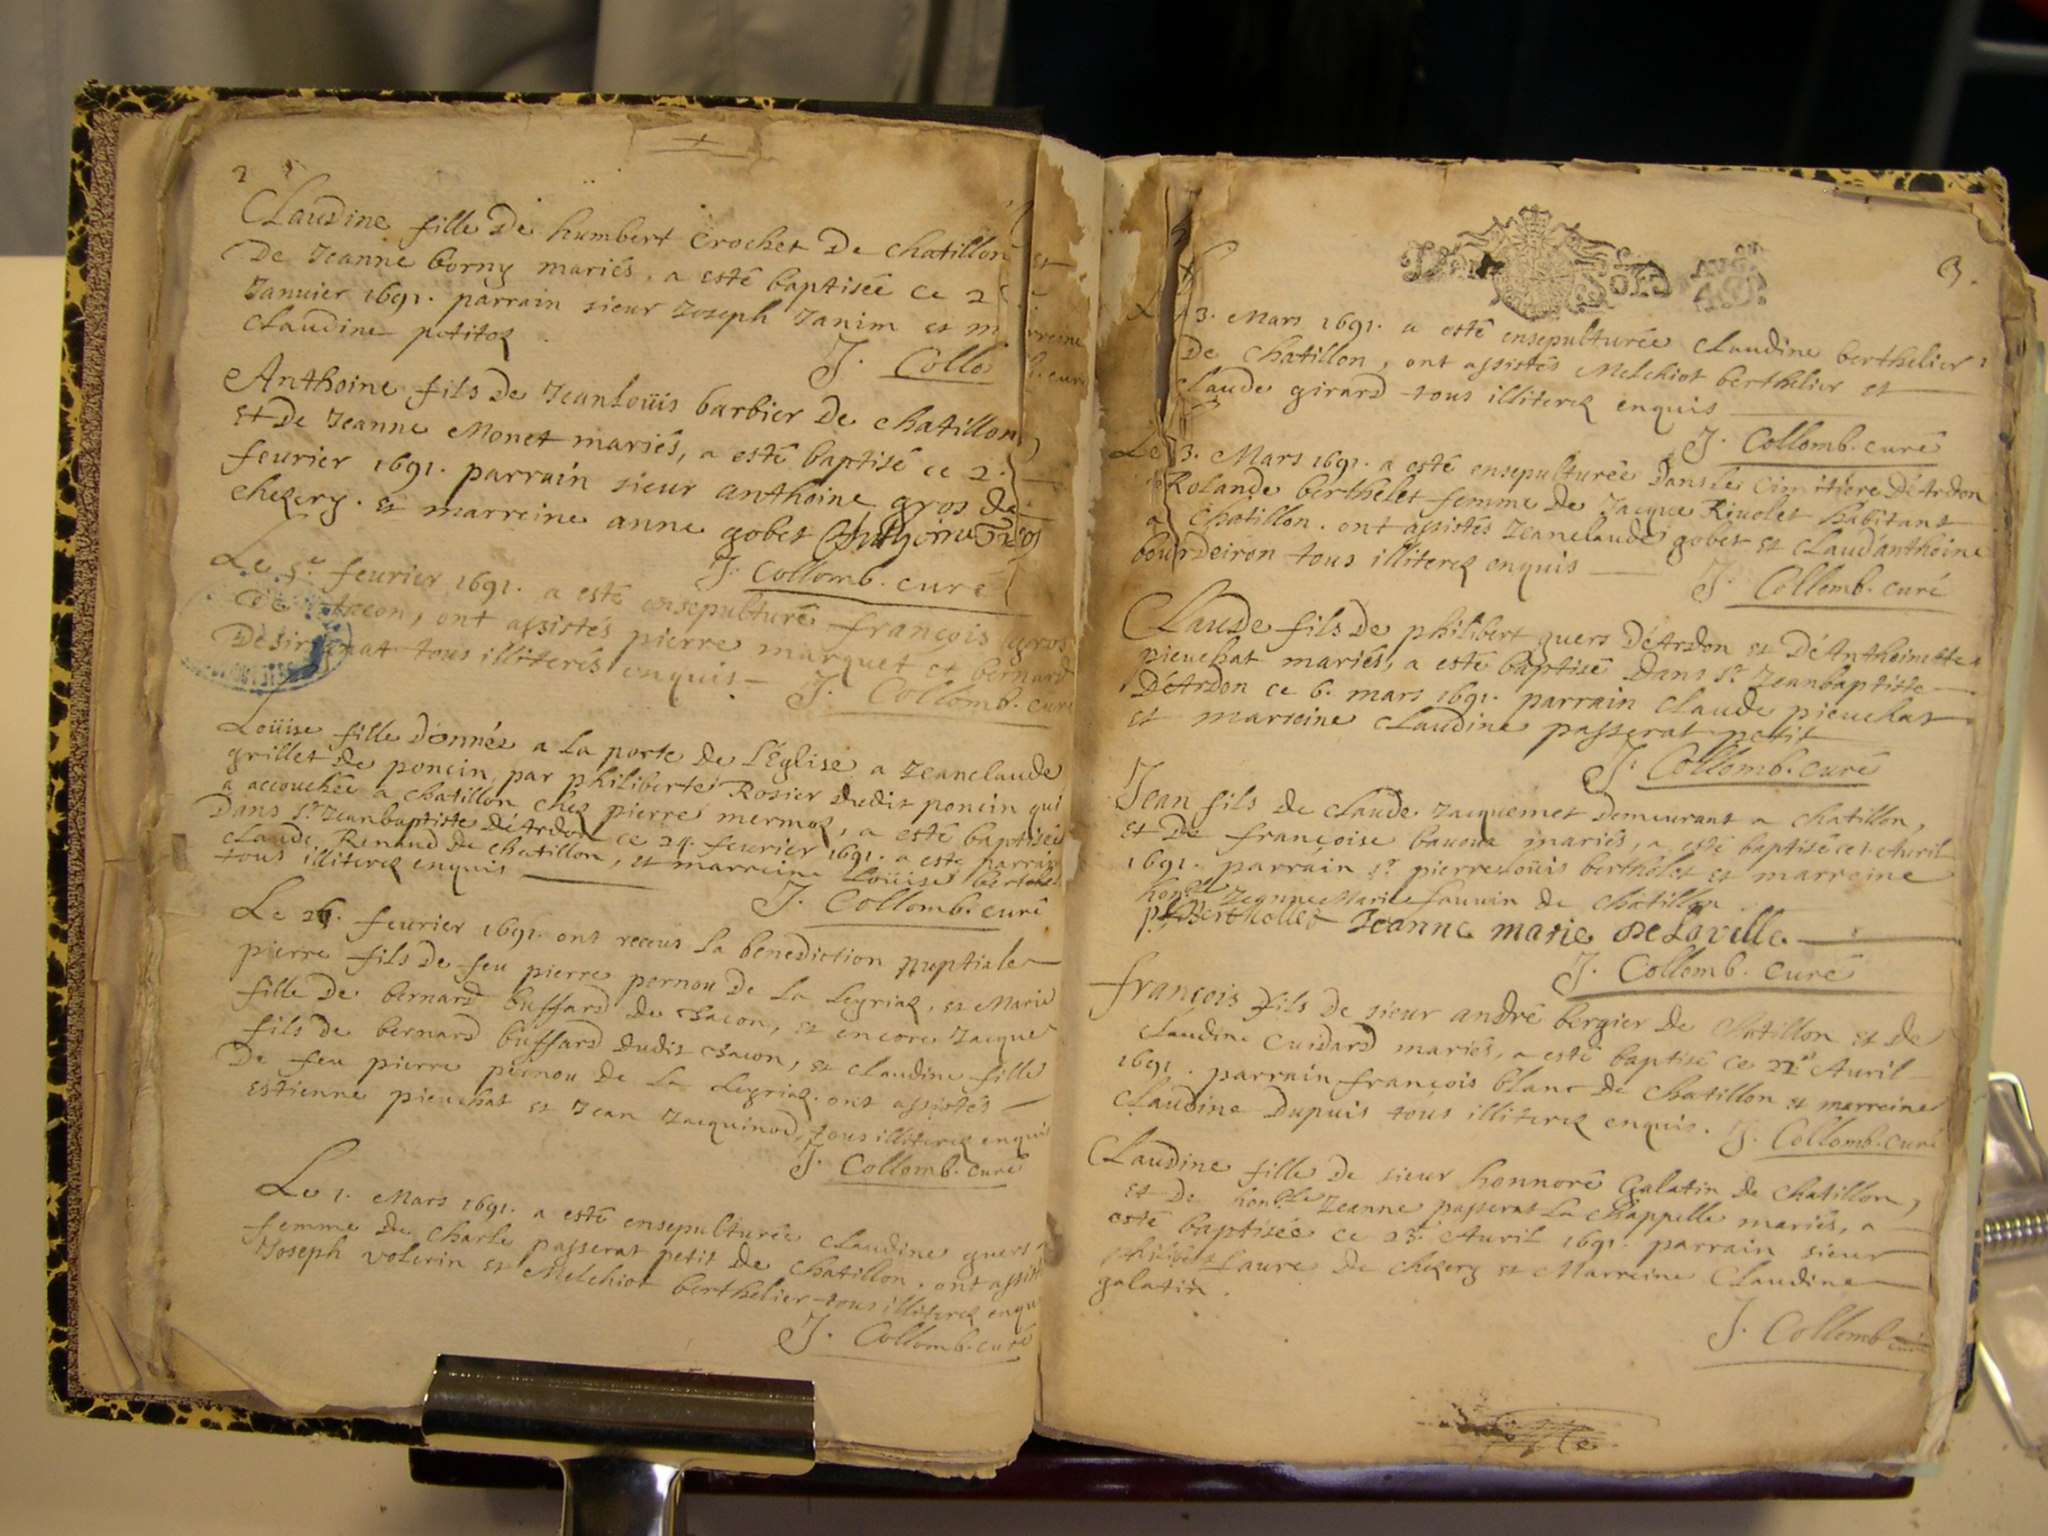 2
Claudine fille de humbert Crochet de chatillon et
De Jeanne borny mariés, a esté baptisée ce 2
Januier 1691. parrain sieur Joseph Janim et m rreine
Claudine petitoz
J. Collo b. curé
Anthoine fils de Jean Loüis barbier de chatillon,
et de Jeanne Monet mariés, a esté baptisé ce 2.
feurier 1691. parrain sieur anthoine gros de
chezery. et marreine anne gobet Anthoine Gros
J. Collomb. curé
Le 5.e feurier 1691. a esté ensepulturé françois gros
ont assistés pierre marquet et bernard
tous illiterés enquis — J. Collomb. curé
Loüise fille donnée a la porte de l'Église a Jeanclaude
grillet de poncin, par philiberte Rosier dudit poncin qui
a accouchée a chatillon chez pierre mermoz, a esté baptisée
Dans St. Jeanbaptiste d'Ardon ce 24. feurier 1691. a esté parrain
claude Renaud de chatillon, et marreine Loüise berthel
tous illiterez enquis J. Collomb. curé
Le 26. feurier 1691. ont receus la benediction nuptiale
pierre fils de feu pierre pernou de la Leyriaz, et Marie
fille de bernard buffard de chacon, et encore Jacque
fils de bernard buffard dudit chacon, et claudine fille
De feu pierre pernou de la Leyriaz. ont assistés
estienne pieuchat et Jean Jacquinod, tous illiterez enquis
J. Collomb. curé
Le 1. Mars 1691. a esté ensepulturée claudine guers
femme de charle passerat petit de chatillon. ont assist
Joseph volerin et Melchiot berthelier tous illiterez enqu
J. Collomb. curé
3.
Le 3. Mars 1691. a esté ensepulturée claudine berthelier
De chatillon, ont assistés Melchiot berthelier et
claude girard tous illiterez enquis
J. Collomb. curé
Le 3. Mars 1691. a esté ensepulturée dans le cimitiere d'Ardon
Rolande berthelet femme de Jacque Riuolet habitant
a chatillon. ont assistés Jeanclaude gobet et claud'anthoine
bourdeiron tous illiterez enquis
J. Collomb. curé
Claude fils de philibert guers d'Ardon et d'Anthoinette
pieuchat mariés, a esté baptisé dans St. Jeanbaptiste
d'Ardon ce 6. mars 1691. parrain claude pieuchat
et marreine claudine passerat petit
J. Collomb. curé
Jean fils de claude Jacquemet demeurant a chatillon,
et de françoise mariés, a esté baptisé ce 1. Auril
1691. parrain sr. pierre Loüis berthelet et marreine
honble Jeanne Marie fauuin de chatillon
Berthollet Jeanne marie De Laville
J. Collomb. curé
françois fils de sieur andré bergier de chatillon et de
claudine cuidard mariés, a esté baptisé ce 22e Auril
1691. parrain françois blanc de chatillon et marreine
claudine dupuis tous illiterez enquis. J. Collomb. curé
Claudine fille de sieur honnoré galatin de chatillon,
et de honble Jeanne passerat la chappelle mariés, a
esté baptisée ce 23. Auril 1691. parrain sieur
philibert faure de chezery et Marreine Claudine
galatin.
J. Collomb curé